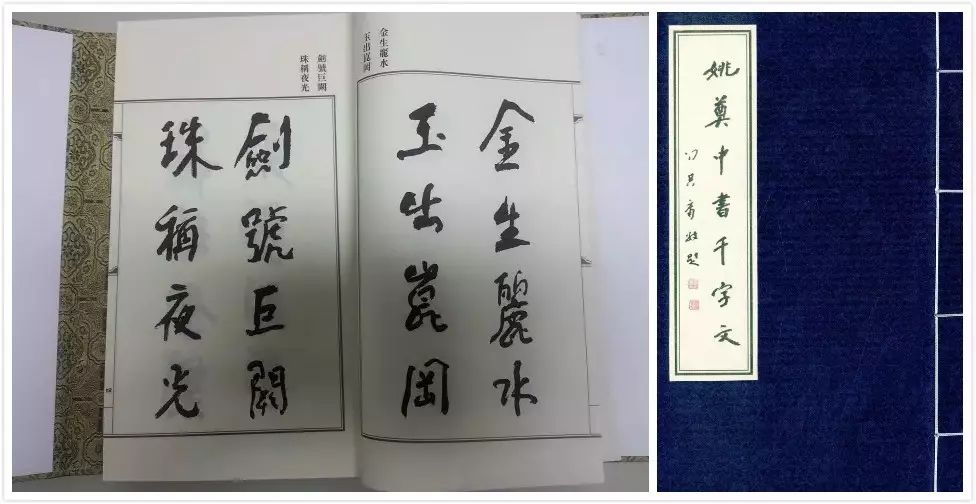 金生麗水
玉出崑岡
金生麗水
玉出崑岡
劍號巨闕
珠稱夜光
劍號巨闕
珠稱夜光
姚奠中書千字文
馮其庸敬題